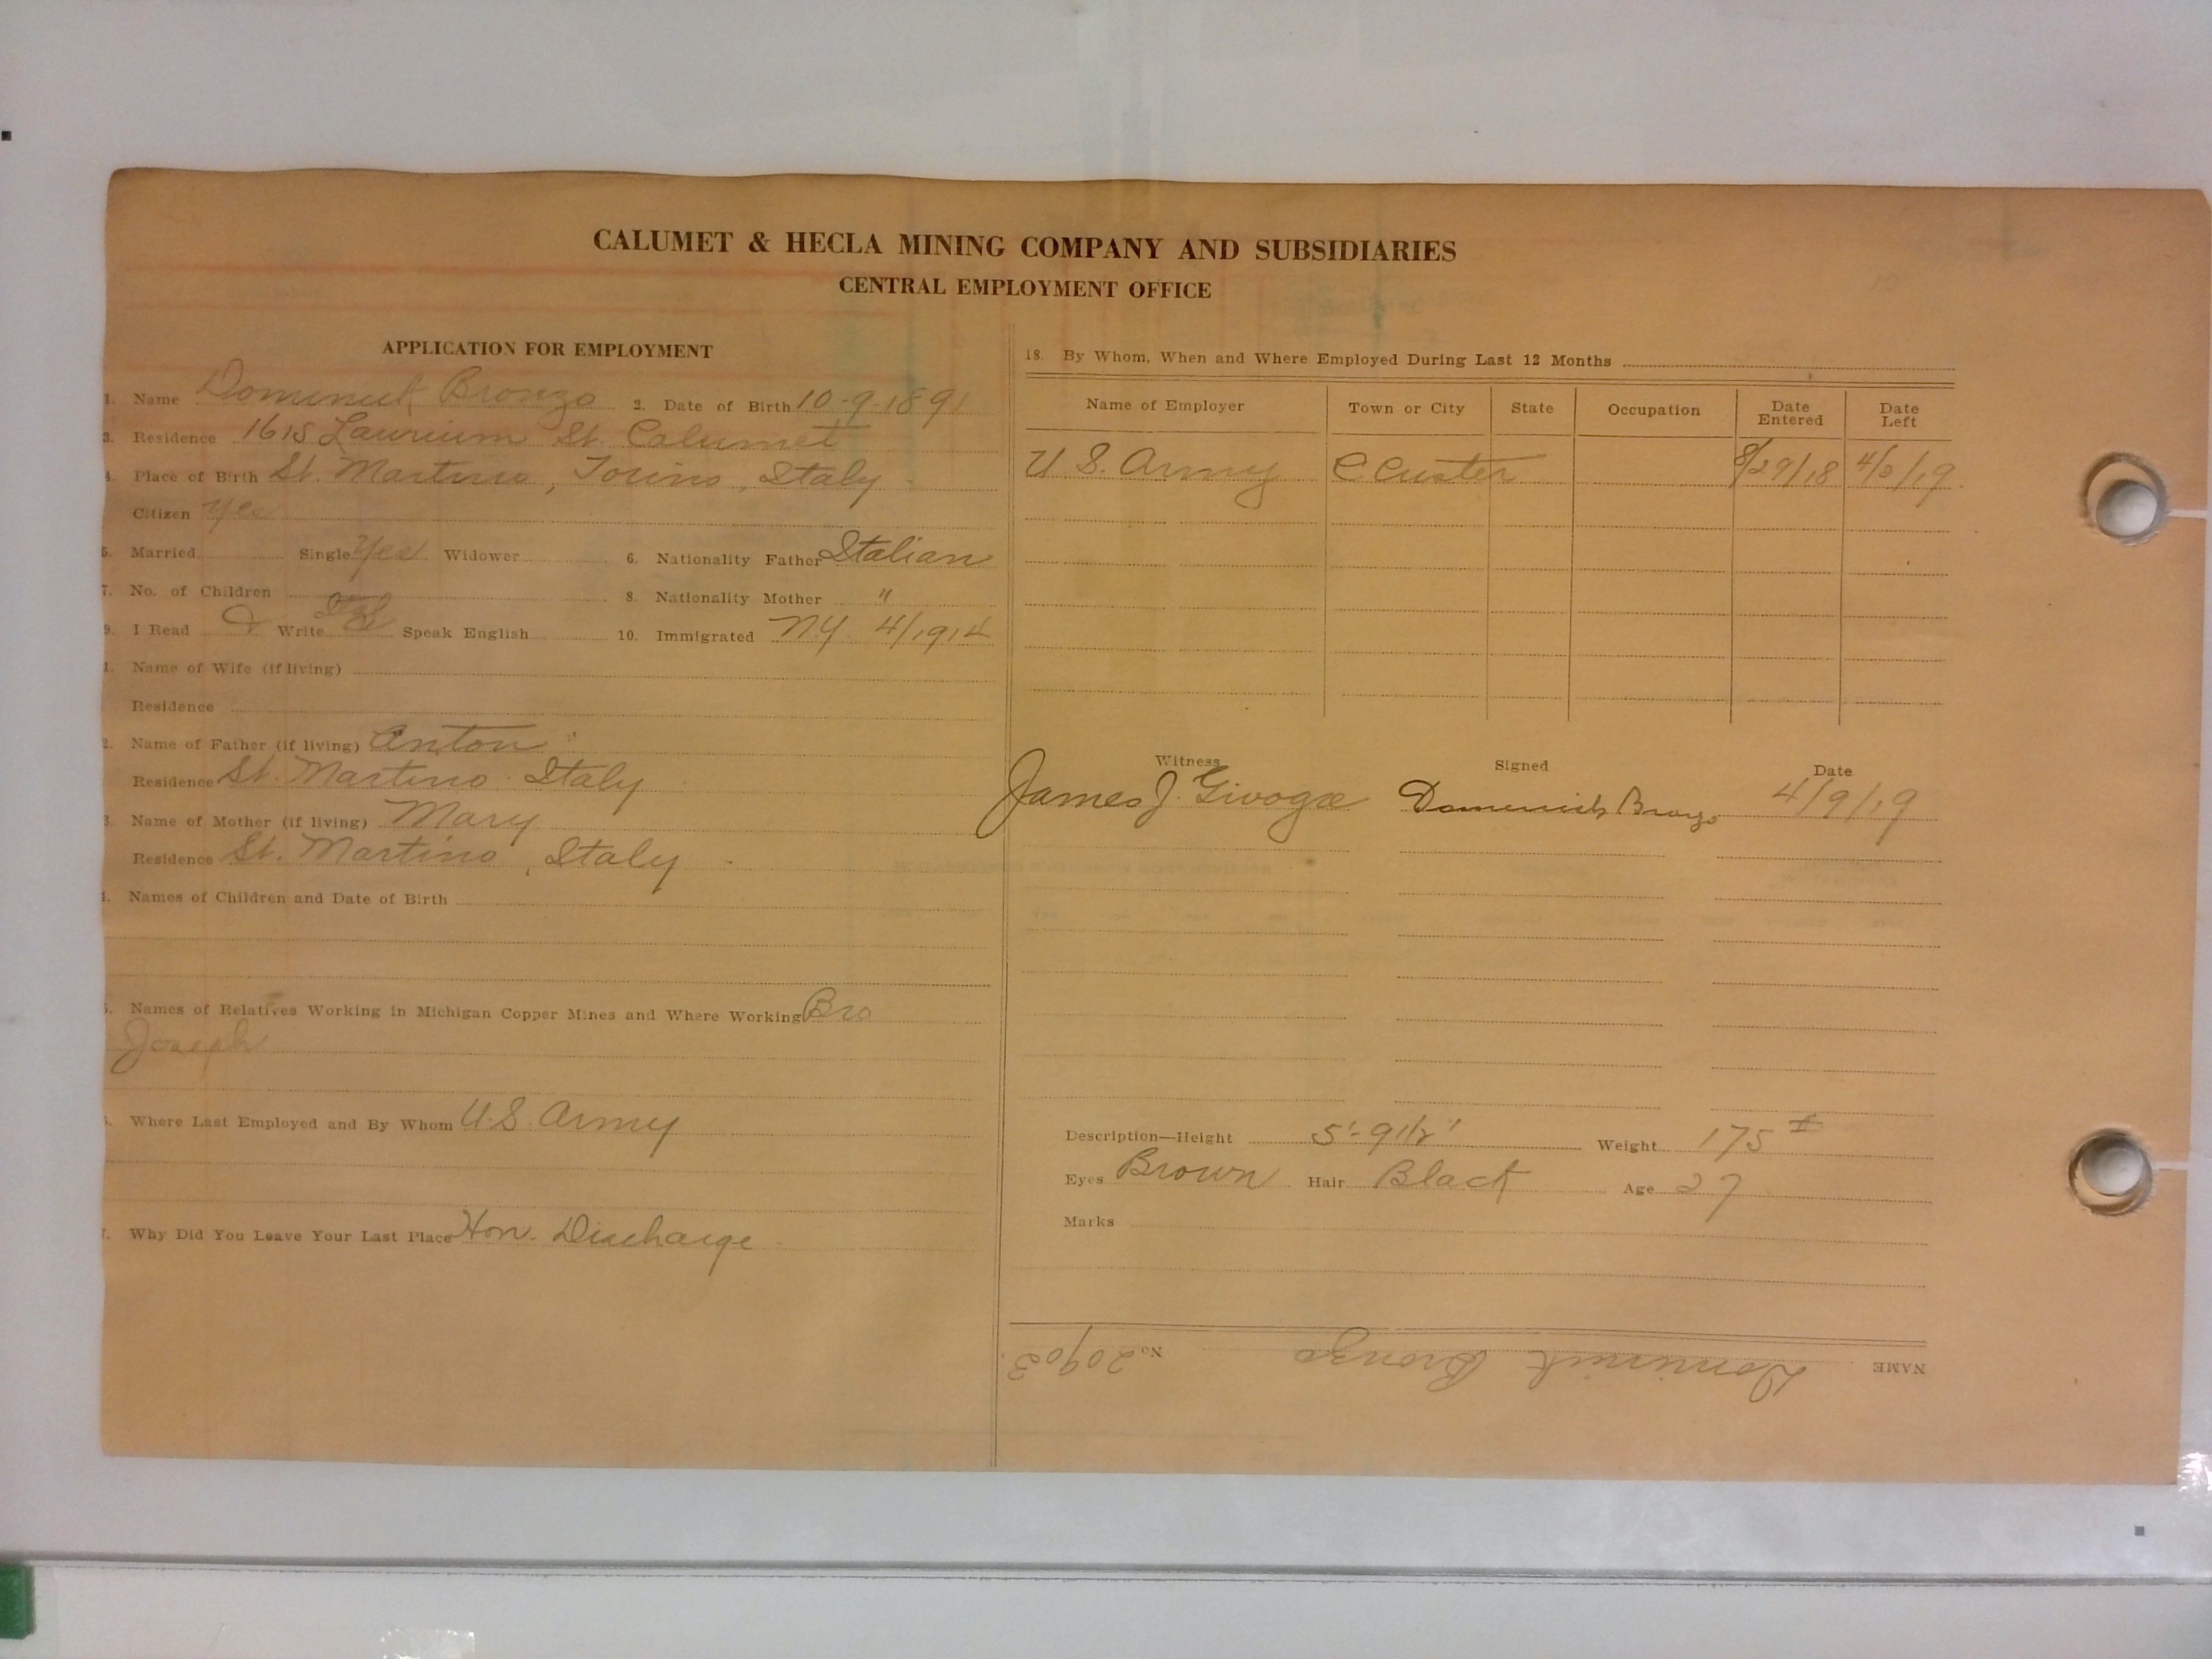 CALUMET & HECLA MINING COMPANY AND SUBSIDIARIES
CENTRAL EMPLOYMENT OFFICE
APPLICATION FOR EMPLOYMENT
1. Name Dominick Bronzo 2. Date of Birth 10-9-1891
3. Residence 1615 Laurium St. Calumet
4. Place of Birth St. Martino, Torino, Italy
Citizen Yes
5. Married Single Yes Widower 6. Nationality Father Italian
7. No. of Children 8. Nationality Mother "
9. I Read Write Speak English 10. Immigrated N.Y. 4/1914
1. Name of Wife (if living)
Residence
2. Name of Father (if living) Anton
Residence St. Martino Italy
3. Name of Mother (if living) Mary
Residence St. Martino, Italy
4. Names of Children and Date of Birth
5. Names of Relatives Working in Michigan Copper Mines and Where Working Bro
Joseph
6. Where Last Employed and By Whom U.S. Army
7. Why Did You Leave Your Last Place Hon. Discharge
18. By Whom, When and Where Employed During Last 12 Months
Name of Employer Town or City State Occupation Date Entered Date Left
U S. Army C Custer 8/29/18
Witness Signed Date
James J. Domenick Bronzo 4/9/19
Description—Height 5'-9 1/2" Weight 175 #
Eyes Brown Hair Black Age 27
Marks
NAME Dominick Bronzo No. 20903